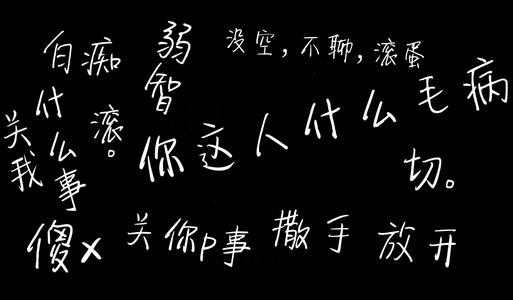 白痴
弱智
没空，不聊，滚蛋
关我什么事
滚。
你这人什么毛病
切。
傻x
关你p事
撒手
放开